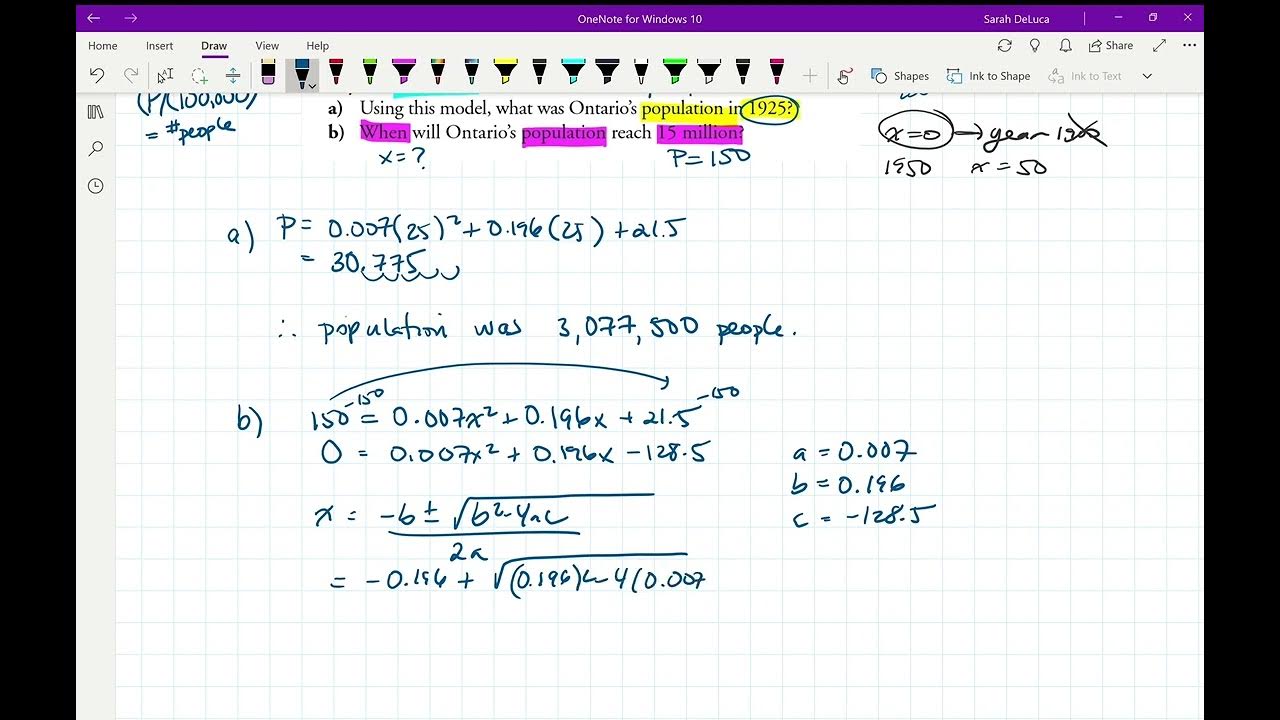 OneNote for Windows 10
Sarah DeLuca
Home Insert Draw View Help
Share
Shapes Ink to Shape Ink to Text
(P)(100,000)
= #people
a) Using this model, what was Ontario's population in 1925?
b) When will Ontario's population reach 15 million?
x = ?
P = 150
x=0 → year 1900
1950 x = 50
a) P = 0.007(25)² + 0.196(25) + 21.5
= 30.775
∴ population was 3,077,500 people.
b) 150 -150 = 0.007x² + 0.196x + 21.5 -150
0 = 0.007x² + 0.196x - 128.5
a = 0.007
b = 0.196
c = -128.5
x = -b ± √b²-4ac
2a
= -0.196 + √(0.196)² - 4(0.007